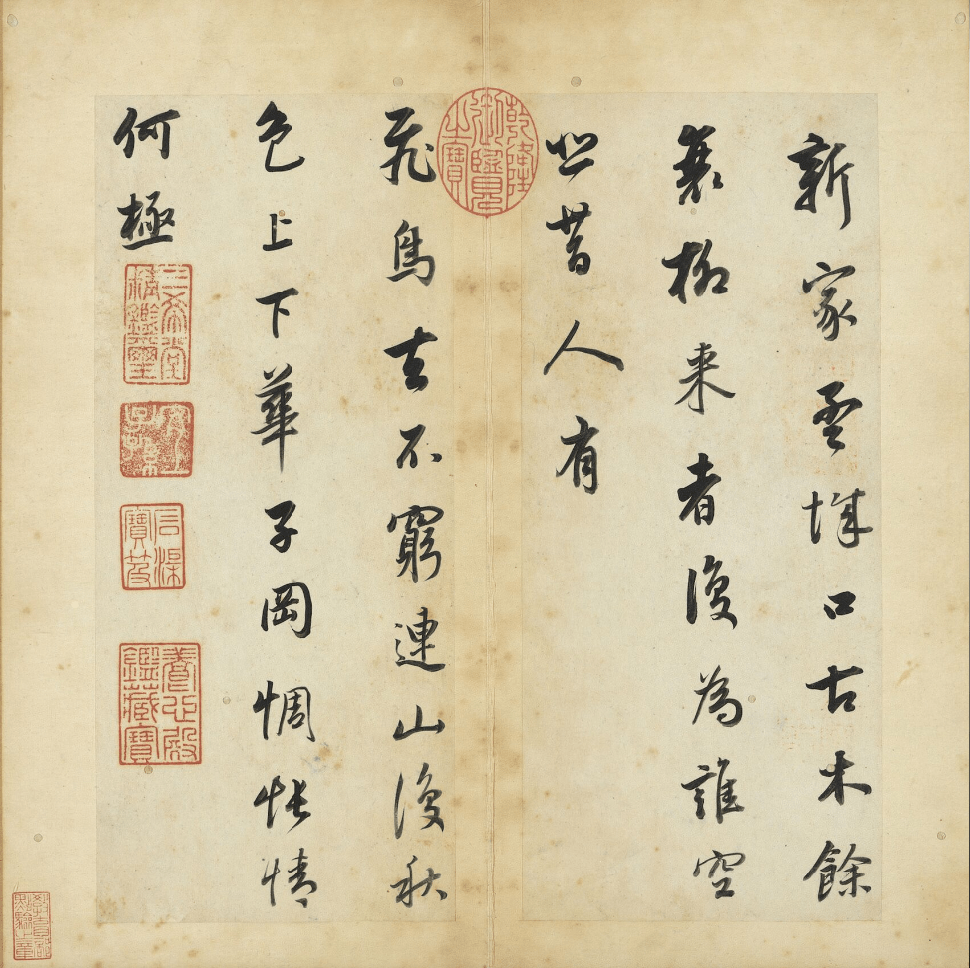 新家孟城口古木餘
衰柳来者復為誰空
悲昔人有
乾隆御覽之寶
飛鳥去不窮連山復秋
色上下華子岡惆悵情
何極
三希堂精鑑璽
宜子孫
石渠寶笈
養心殿鑑藏寶
教育部點驗之章